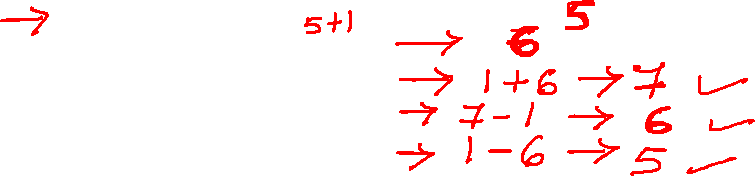 → 5+1 → 6 5
→ 1+6 → 7 ✓
→ 7-1 → 6 ✓
→ 1-6 → 5 ✓